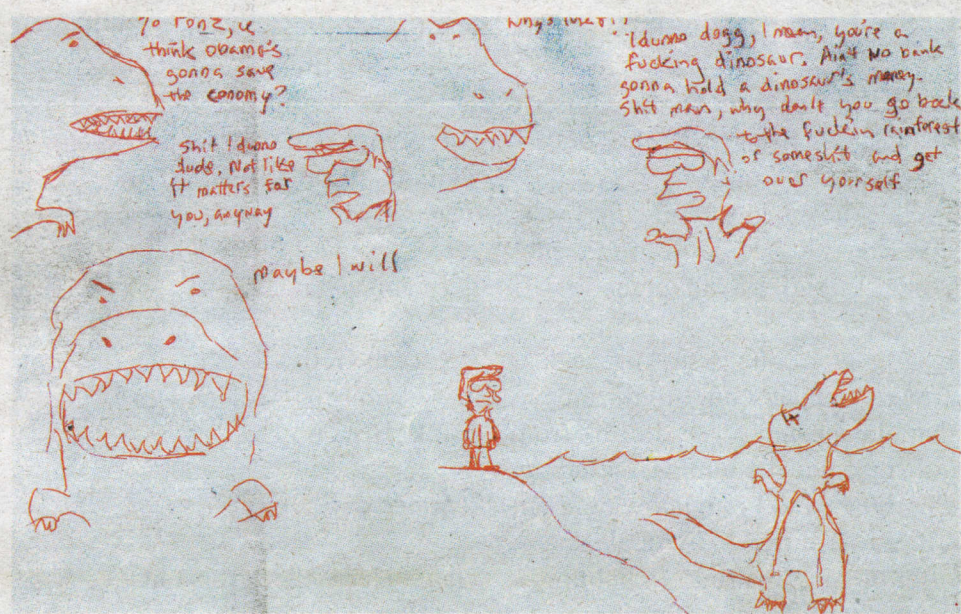 Yo Ronz, u
think Obama's
gonna save
the conomy?
shit I dunno
dude, Not like
it matters for
you, anyway
why's that??
I dunno dogg, I mean, you're a
fucking dinosaur. Ain't No bank
gonna hold a dinosaur's money.
shit man, why don't you go back
to the fuckin rainforest
or someshit and get
over yourself
maybe I will